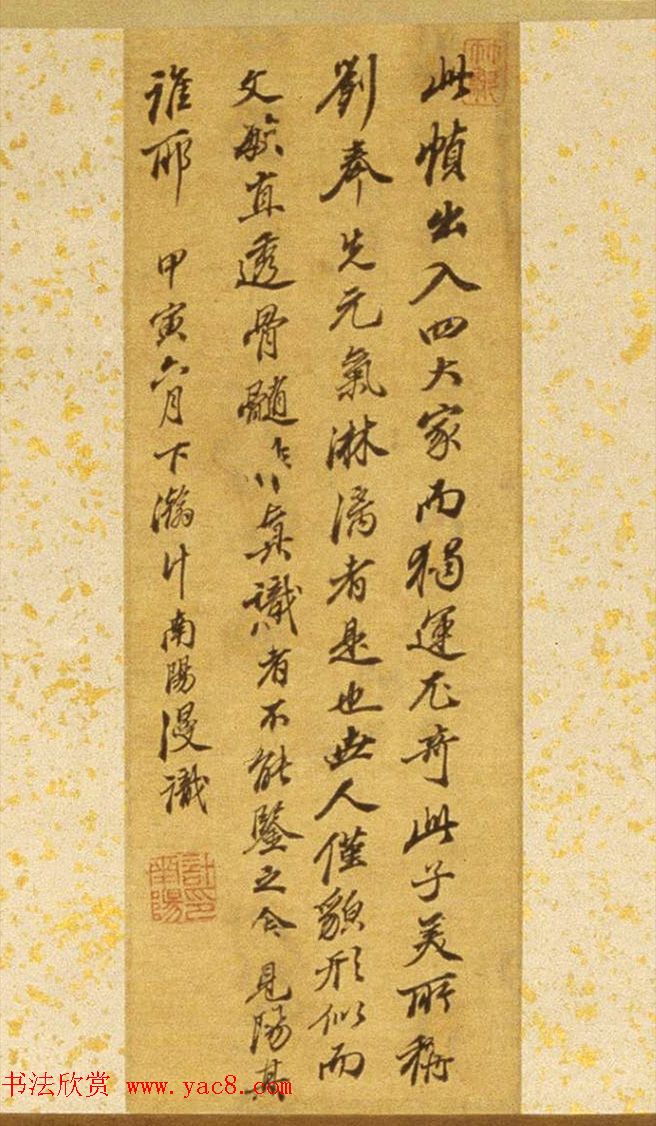 此幀出入四大家而獨運尤奇此子美所稱
劉奉先元氣淋漓者是也世人僅貌形似而
文毓直透骨髓非真識者不能鑒之舍見陽其
誰耶 甲寅六月下瀚計南陽漫識
計印南陽
书法欣赏 www.yac8.com